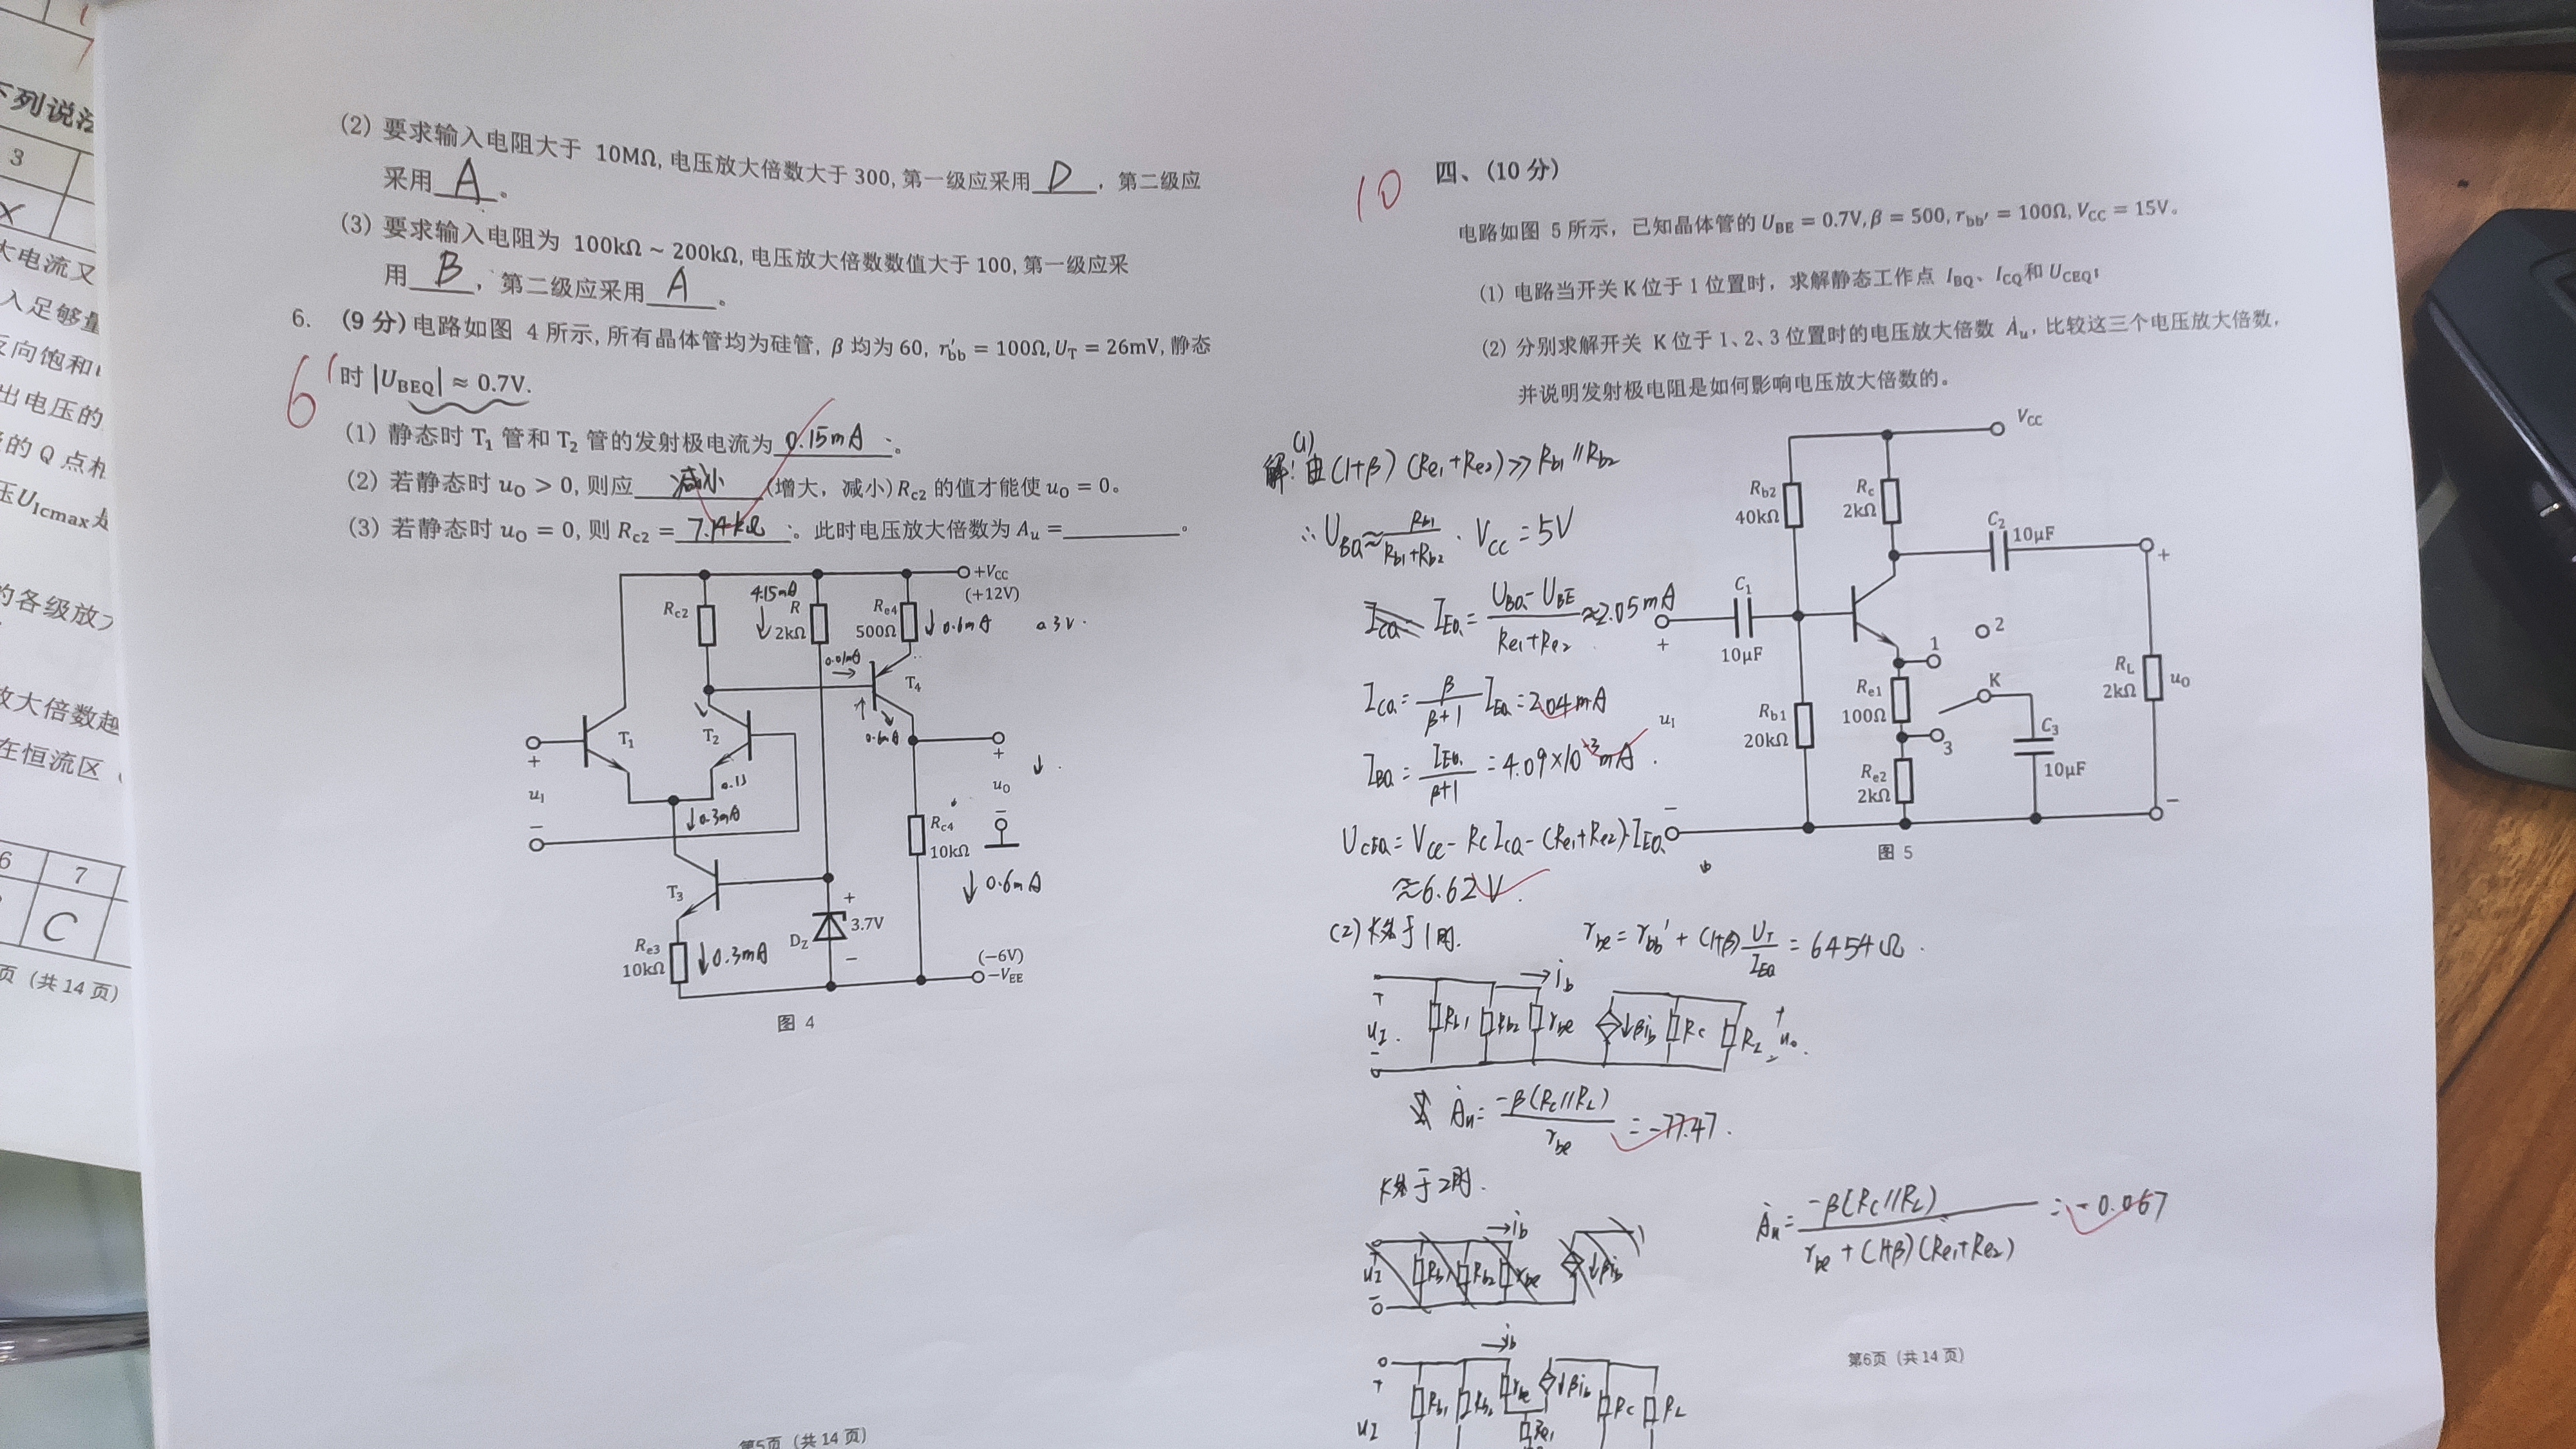 下列说法
3
X
大电流又
入足够量
反向饱和
出电压的
的 Q 点相
压U_Icmax是
的各级放大
放大倍数越
在恒流区（
6 7
C
页（共 14 页）
(2) 要求输入电阻大于 10MΩ, 电压放大倍数大于 300, 第一级应采用 D ，第二级应
采用 A 。
(3) 要求输入电阻为 100kΩ ~ 200kΩ, 电压放大倍数数值大于 100, 第一级应采
用 B ，第二级应采用 A 。
6. (9 分) 电路如图 4 所示, 所有晶体管均为硅管, β 均为 60, r′bb = 100Ω, U_T = 26mV, 静态
时 |U_BEQ| ≈ 0.7V.
6
(1) 静态时 T₁ 管和 T₂ 管的发射极电流为 0.15mA 。
(2) 若静态时 u_O > 0, 则应 减小 (增大，减小) R_c2 的值才能使 u_O = 0。
(3) 若静态时 u_O = 0, 则 R_c2 = 7.14kΩ 。此时电压放大倍数为 A_u = 。
+V_CC
(+12V)
R_c2
4.15mA
R
2kΩ
R_e4
500Ω
0.6mA
0.3V.
0.01mA
T₄
T₁
T₂
0.6mA
0.15
+
u_I
−
0.3mA
+
u_O
−
R_c4
10kΩ
0.6mA
T₃
+
3.7V
D_Z
−
R_e3
10kΩ
0.3mA
(−6V)
−V_EE
图 4
第5页（共 14 页）
10
四、(10 分)
电路如图 5 所示，已知晶体管的 U_BE = 0.7V, β = 500, r_bb′ = 100Ω, V_CC = 15V。
(1) 电路当开关 K 位于 1 位置时，求解静态工作点 I_BQ、I_CQ和 U_CEQ;
(2) 分别求解开关 K 位于 1、2、3 位置时的电压放大倍数 Ȧ_u，比较这三个电压放大倍数，
并说明发射极电阻是如何影响电压放大倍数的。
(1)
解: 由 (1+β)(Re1+Re2) >> Rb1 // Rb2
∴ U_BQ ≈ Rb1/(Rb1+Rb2) · Vcc = 5V
I_EQ = (U_BQ − U_BE)/(Re1+Re2) ≈ 2.05mA
I_CQ = β/(β+1) I_EQ = 2.04mA
I_BQ = I_EQ/(β+1) = 4.09×10⁻³mA.
U_CEQ = Vcc − Rc I_CQ − (Re1+Re2)·I_EQ
≈ 6.62V.
V_CC
R_b2
40kΩ
R_c
2kΩ
C₂
10μF
+
C₁
10μF
+
1
2
R_L
2kΩ
u_O
R_e1
100Ω
K
u_I
R_b1
20kΩ
3
C₃
10μF
R_e2
2kΩ
−
−
图 5
(2) K处于1时.
r_be = r_bb′ + (1+β) U_T/I_EQ = 6454Ω.
i_b
+
u_I
−
Rb1 Rb2 r_be βi_b Rc R_L
+
u_o
−
Ȧ_u = −β(Rc//RL)/r_be = −77.47.
K处于2时.
Ȧ_u = −β(Rc//RL)/(r_be+(1+β)(Re1+Re2)) = −0.067
i_b
u_I
−
Rb1 Rb2 r_be βi_b
i_b
+
u_I
Rb1 Rb2 r_be βi_b Rc RL
Re1
第6页（共 14 页）